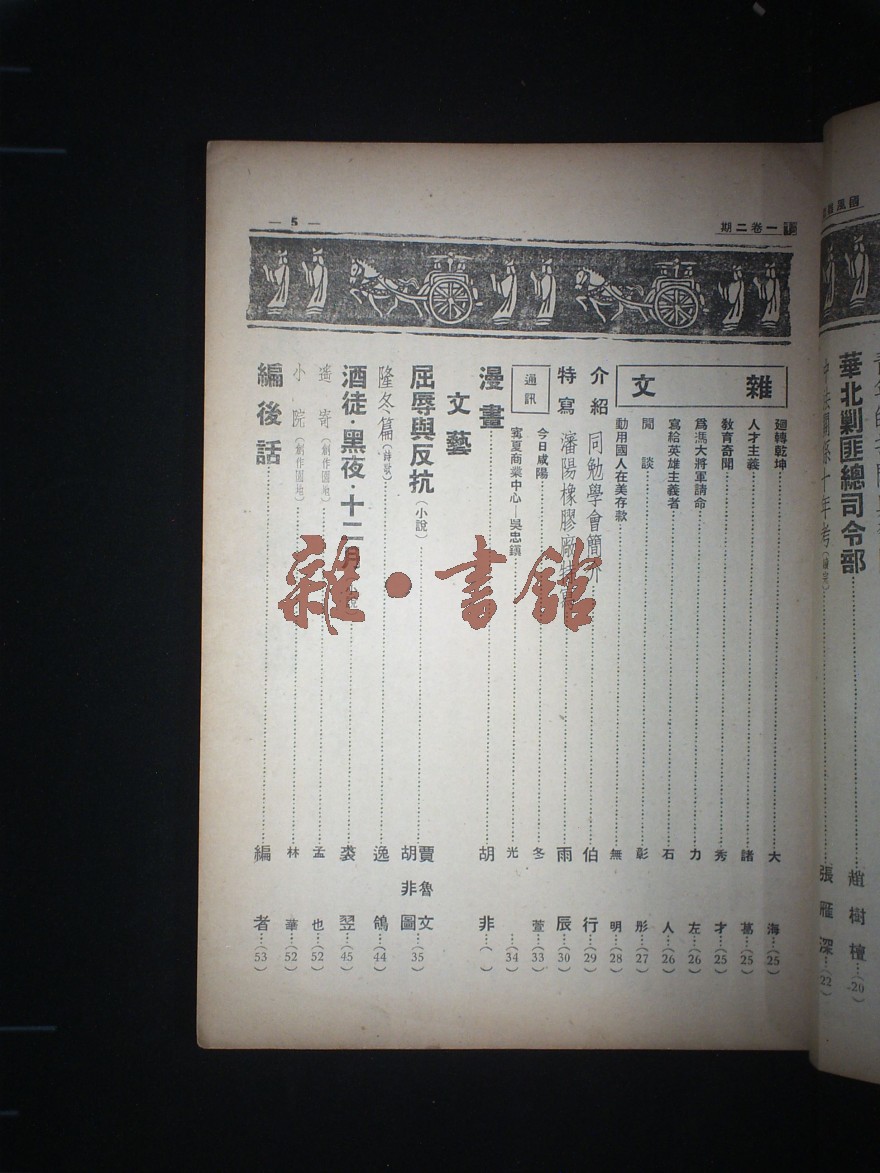 國風
華北剿匪總司令部……趙樹檀…(20)
中法關係十年考……張雁深…(22)
一卷二期
— 5 —
雜文
廻轉乾坤……大海…(25)
人才主義……諸葛…(25)
教育奇聞……秀才…(25)
爲馮大將軍請命……力左…(26)
寫給英雄主義者……石人…(26)
閒談……彭彤…(27)
動用國人在美存款……無明…(28)
介紹 同勉學會簡介……伯行…(29)
特寫 瀋陽橡膠廠特寫……雨辰…(30)
通訊
今日咸陽……冬萱…(33)
寗夏商業中心—吳忠鎭……光…(34)
漫畫……胡非…( )
文藝
屈辱與反抗(小說)……賈魯文 胡非圖…(35)
隆冬篇(詩歌)……逸鴿…(44)
酒徒·黑夜·十二月……裘翌…(45)
遙寄(創作園地)……孟也…(52)
小院(創作園地)……林華…(52)
編後話……編者…(53)
雜·書館